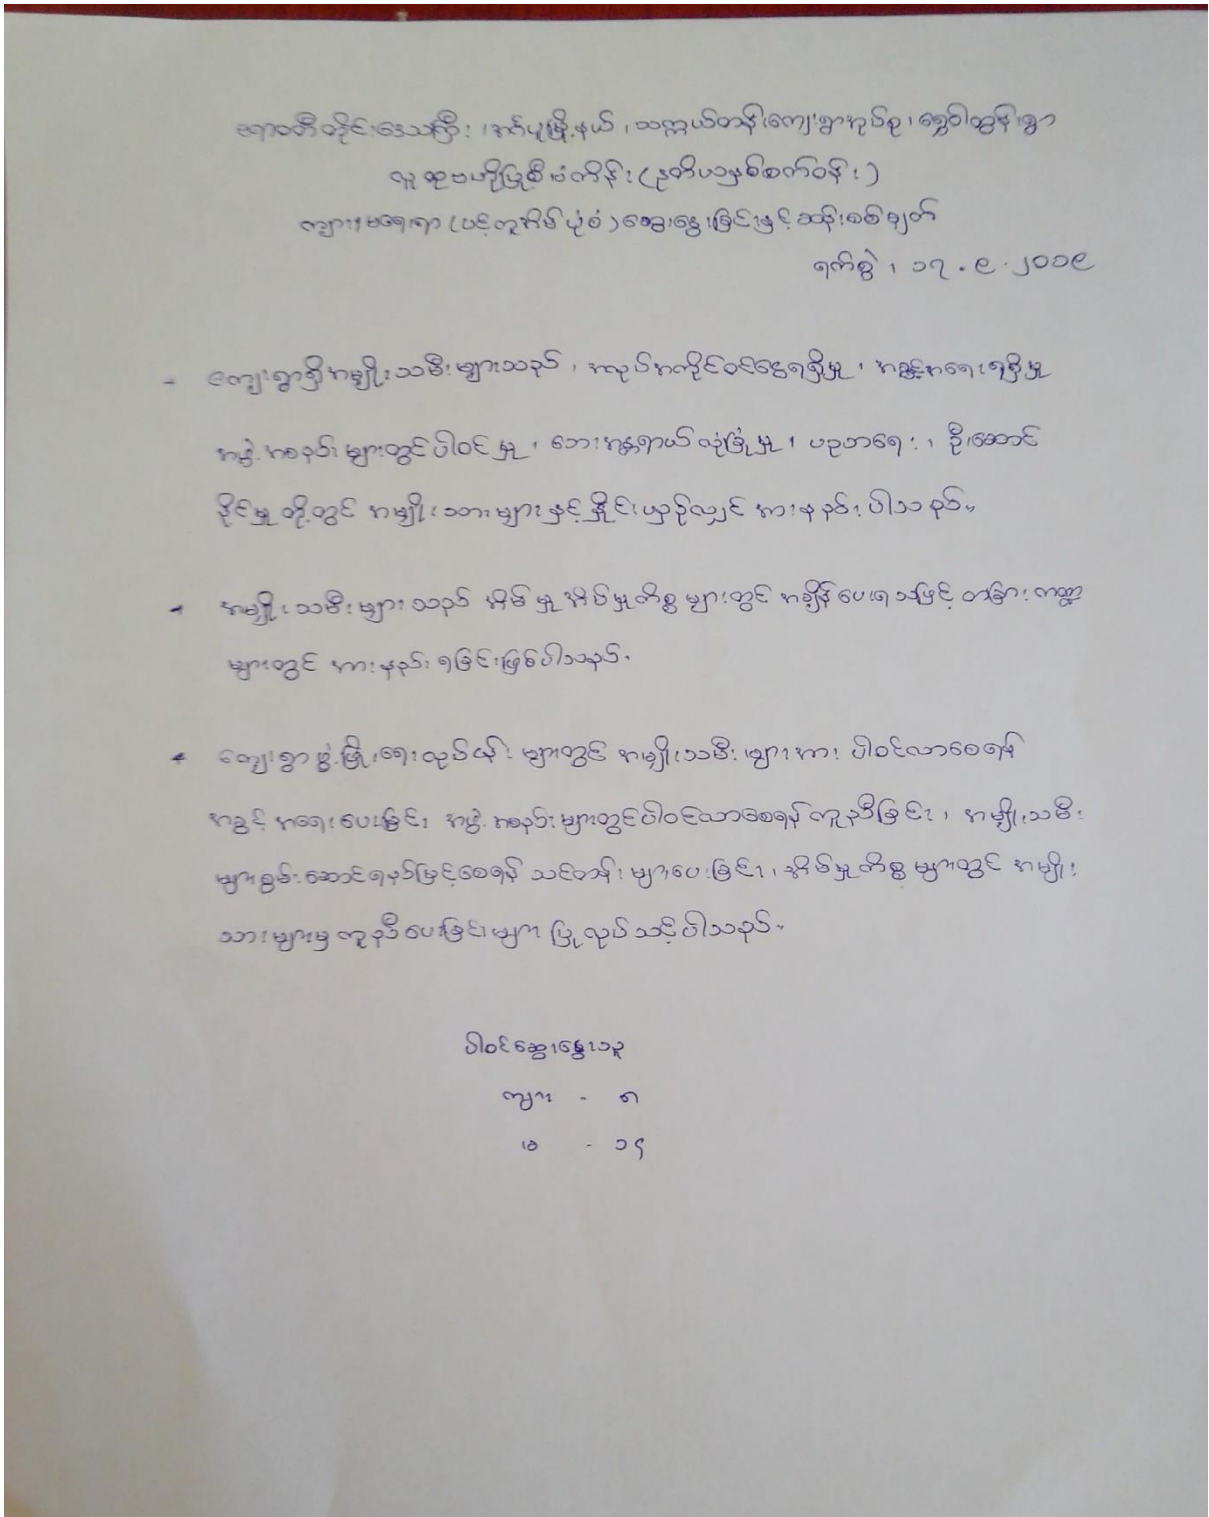 ဧရာဝတီတိုင်းဒေသကြီး ၊ အင်္ဂပူမြို့နယ် ၊ သက္ကယ်တန်းကျေးရွာအုပ်စု ၊ ရွှေဝါထွန်းရွာ
လူထုဗဟိုပြုစီမံကိန်း (ဒုတိယနှစ်စက်ဝန်း)
ကျား၊မရေးရာ (ပင့်ကူအိမ်ပုံစံ) ဆွေးနွေးခြင်းနှင့်ဆန်းစစ်ချက်
ရက်စွဲ ၊ ၁၇ . ၉ . ၂၀၁၉
- ကျေးရွာရှိအမျိုးသမီးများသည် ၊ အလုပ်အကိုင်ဝင်ငွေရရှိမှု ၊ အခွင့်အရေးရရှိမှု
အဖွဲ့အစည်းများတွင်ပါဝင်မှု ၊ ဘေးအန္တရာယ်လုံခြုံမှု ၊ ပညာရေး ၊ ဦးဆောင်
နိုင်မှုတို့တွင် အမျိုးသားများနှင့်နှိုင်းယှဉ်လျှင် အားနည်းပါသည်။
- အမျိုးသမီးများသည် အိမ်မှုအိမ်မှုကိစ္စများတွင် အချိန်ပေးရသဖြင့် တခြားကဏ္ဍ
များတွင် အားနည်းရခြင်းဖြစ်ပါသည်။
- ကျေးရွာဖွံ့ဖြိုးရေးလုပ်ငန်းများတွင် အမျိုးသမီးများအား ပါဝင်လာစေရန်
အခွင့်အရေးပေးခြင်း အဖွဲ့အစည်းများတွင်ပါဝင်လာစေရန်ကူညီခြင်း ၊ အမျိုးသမီး
များစွမ်းဆောင်ရည်မြင့်စေရန် သင်တန်းများပေးခြင်း ၊ အိမ်မှုကိစ္စများတွင် အမျိုး
သားများမှကူညီပေးခြင်းများ ပြုလုပ်သင့်ပါသည်။
ပါဝင်ဆွေးနွေးသူ
ကျား - ၈
မ - ၁၄